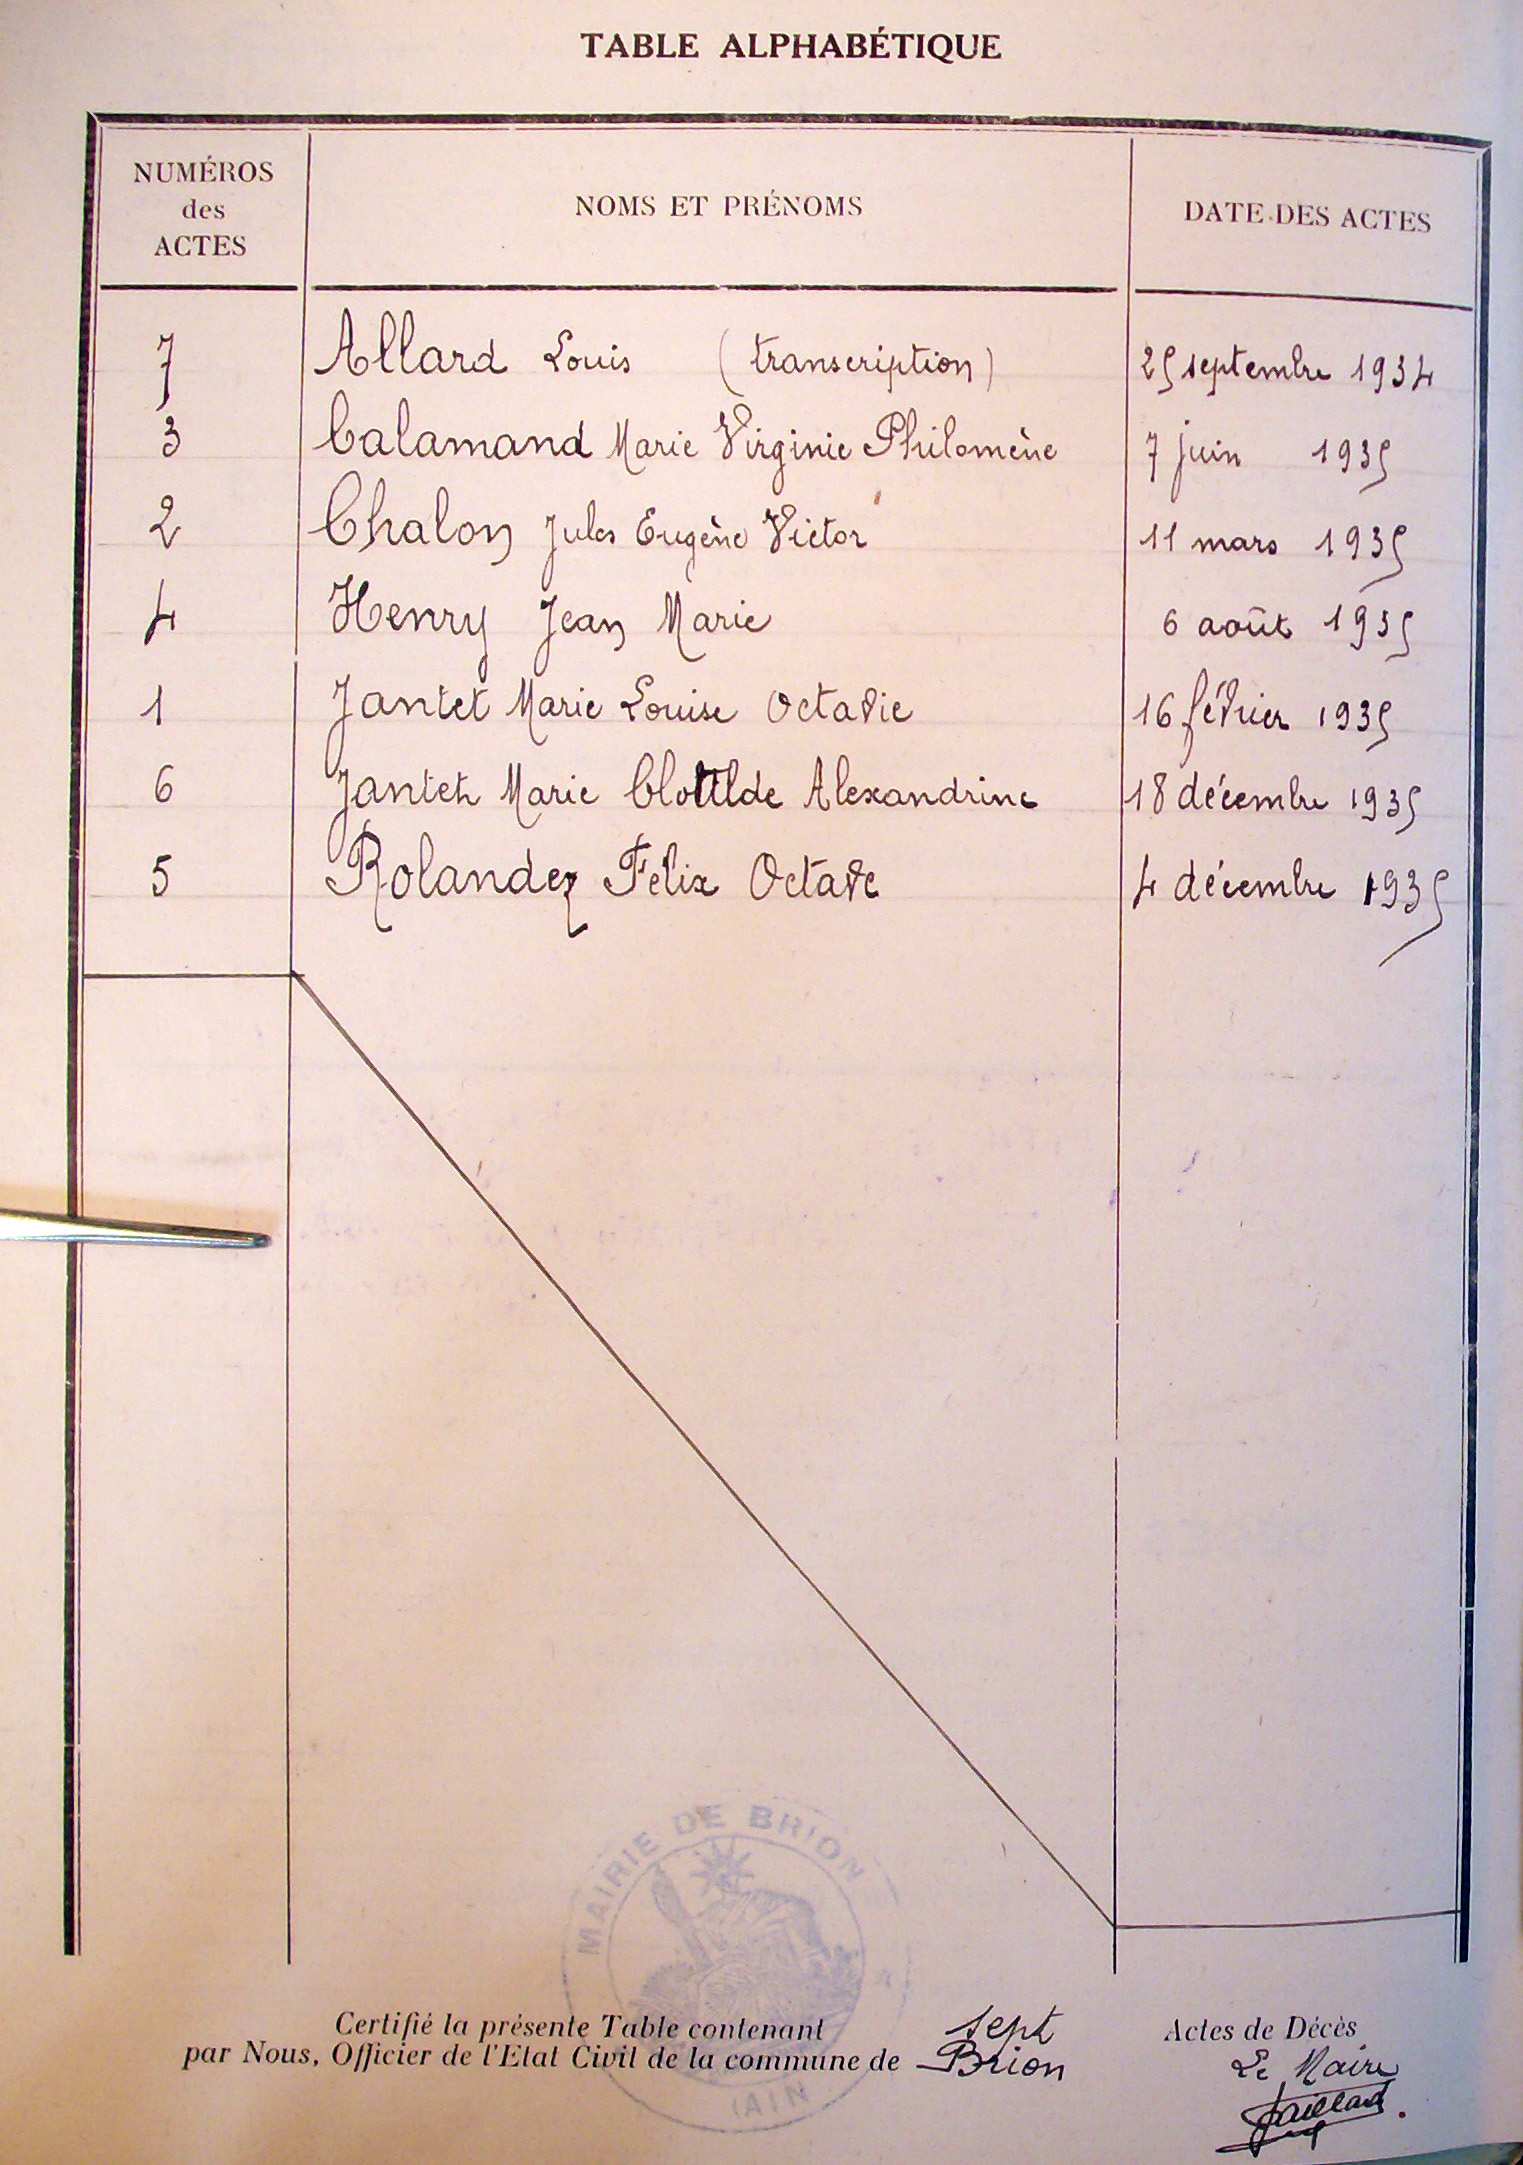 TABLE ALPHABÉTIQUE
NUMÉROS
des
ACTES
NOMS ET PRÉNOMS
DATE DES ACTES
7 Allard Louis (transcription) 25 septembre 1934
3 Calamand Marie Virginie Philomène 7 juin 1935
2 Chalon Jules Eugène Victor 11 mars 1935
4 Henry Jean Marie 6 août 1935
1 Jantet Marie Louise Octavie 16 février 1935
6 Jantet Marie Clotilde Alexandrine 18 décembre 1935
5 Rolandez Félix Octave 4 décembre 1935
MAIRIE DE BRION
(AIN)
Certifié la présente Table contenant sept Actes de Décès
par Nous, Officier de l'Etat Civil de la commune de Brion
Le Maire